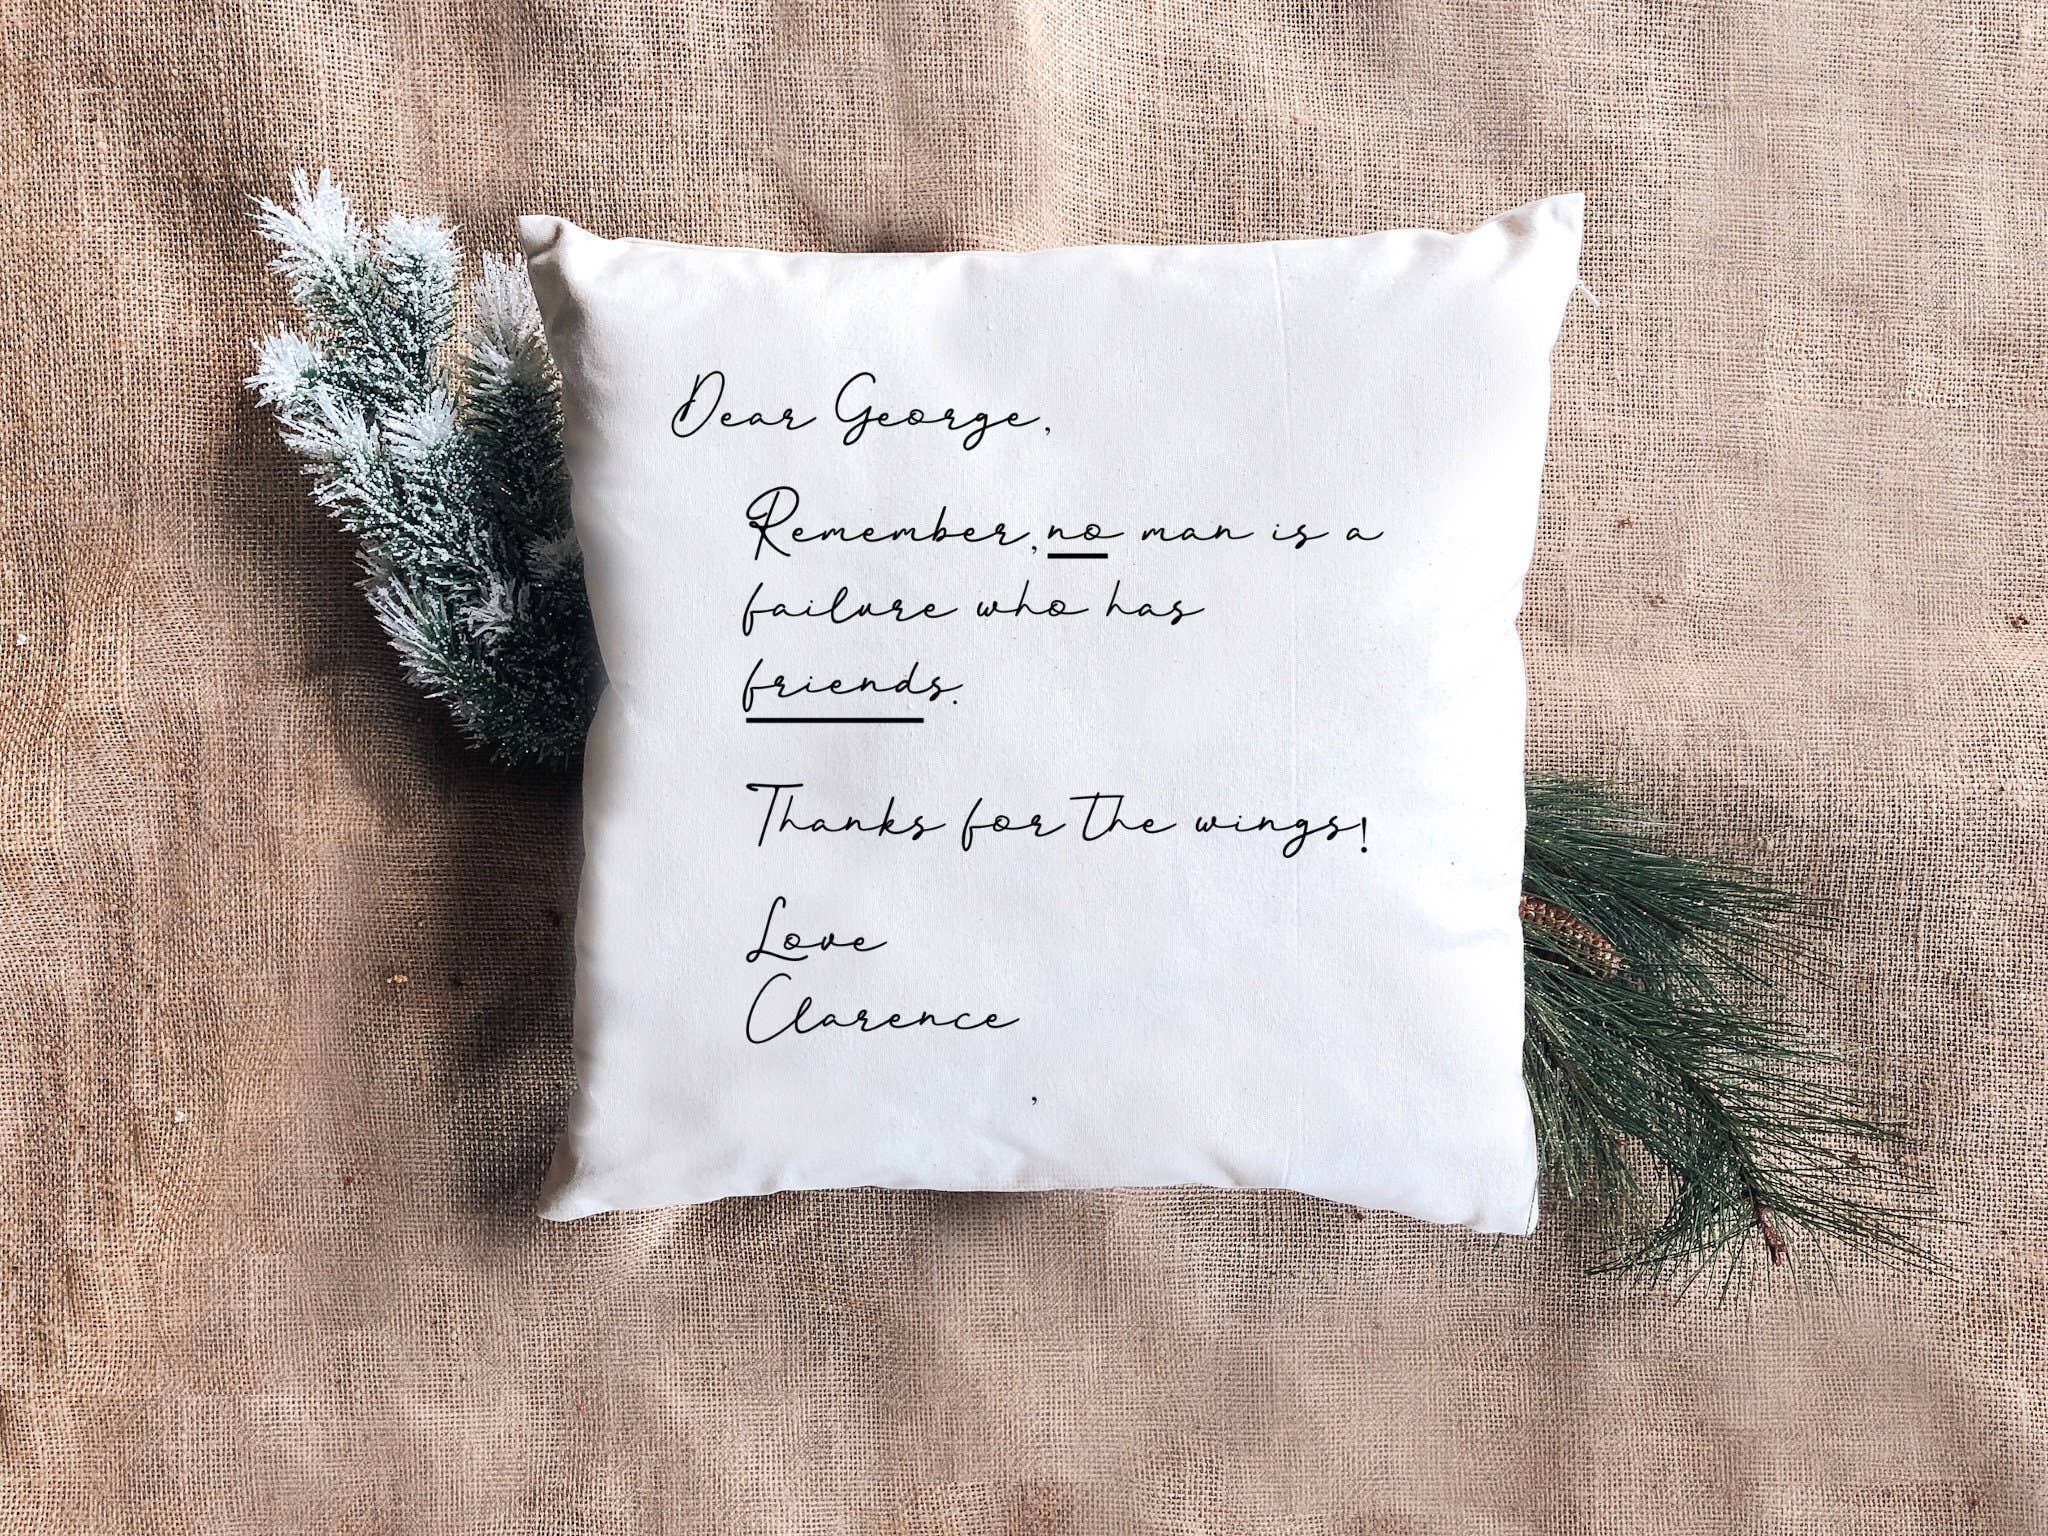 Dear George,
Remember, no man is a
failure who has
friends.
Thanks for the wings!
Love
Clarence
,